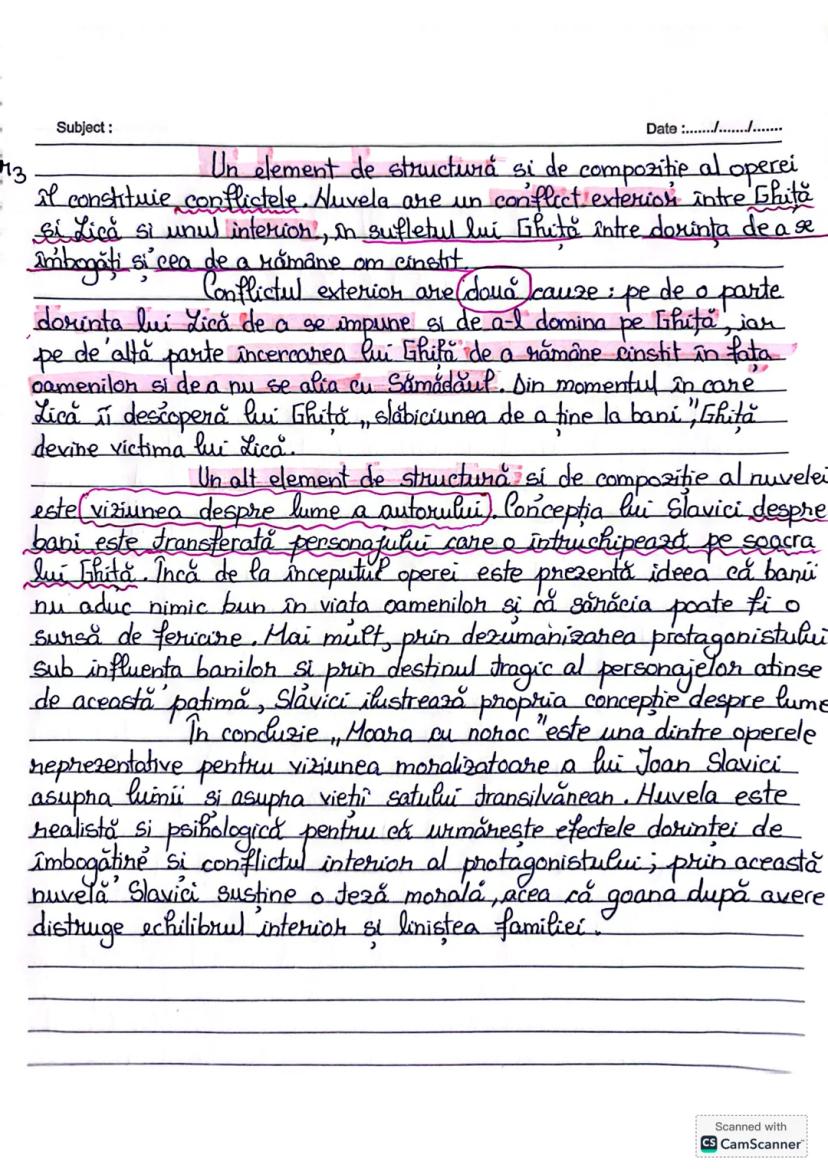 Subject :
Date :....../......./.......
Un element de structură și de compoziție al operei
îl constituie conflictele. Nuvela are un conflict exterior între Ghiță
și Lică și unul interior, în sufletul lui Ghiță între dorința de a se
îmbogăți și cea de a rămâne om cinstit.
Conflictul exterior are două cauze : pe de o parte
dorința lui Lică de a se impune și de a-l domina pe Ghiță, iar
pe de altă parte încercarea lui Ghiță de a rămâne cinstit în fața
oamenilor și de a nu se alia cu Sămădăul. Din momentul în care
Lică îi descoperă lui Ghiță „slăbiciunea de a ține la bani", Ghiță
devine victima lui Lică.
Un alt element de structură și de compoziție al nuvelei
este viziunea despre lume a autorului. Concepția lui Slavici despre
bani este transferată personajului care o întruchipează pe soacra
lui Ghiță. Încă de la începutul operei este prezentă ideea că banii
nu aduc nimic bun în viața oamenilor și că sărăcia poate fi o
sursă de fericire. Mai mult, prin dezumanizarea protagonistului
sub influența banilor și prin destinul tragic al personajelor atinse
de această patimă, Slavici ilustrează propria concepție despre lume
În concluzie „Moara cu noroc" este una dintre operele
reprezentative pentru viziunea moralizatoare a lui Ioan Slavici
asupra lumii și asupra vieții satului transilvănean. Nuvela este
realistă și psihologică pentru că urmărește efectele dorinței de
îmbogățire și conflictul interior al protagonistului ; prin această
nuvelă Slavici susține o teză morală, acea că goana după avere
distruge echilibrul interior și liniștea familiei.
Scanned with
CS CamScanner